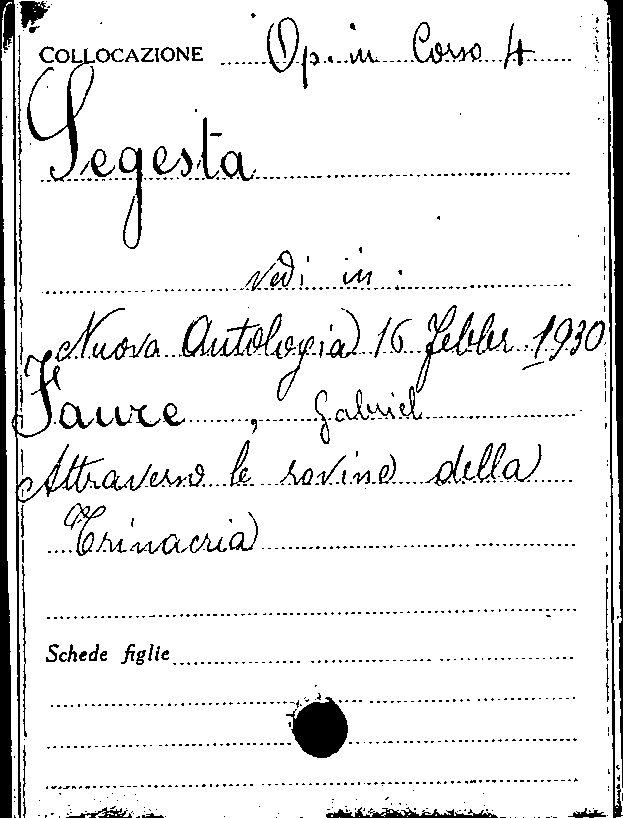 COLLOCAZIONE Op. in Corso 4
Segesta
vedi in:
Nuova Antologia 16 Febbr. 1930
Faure, Gabriel
Attraverso le rovine della
Trinacria
Schede figlie